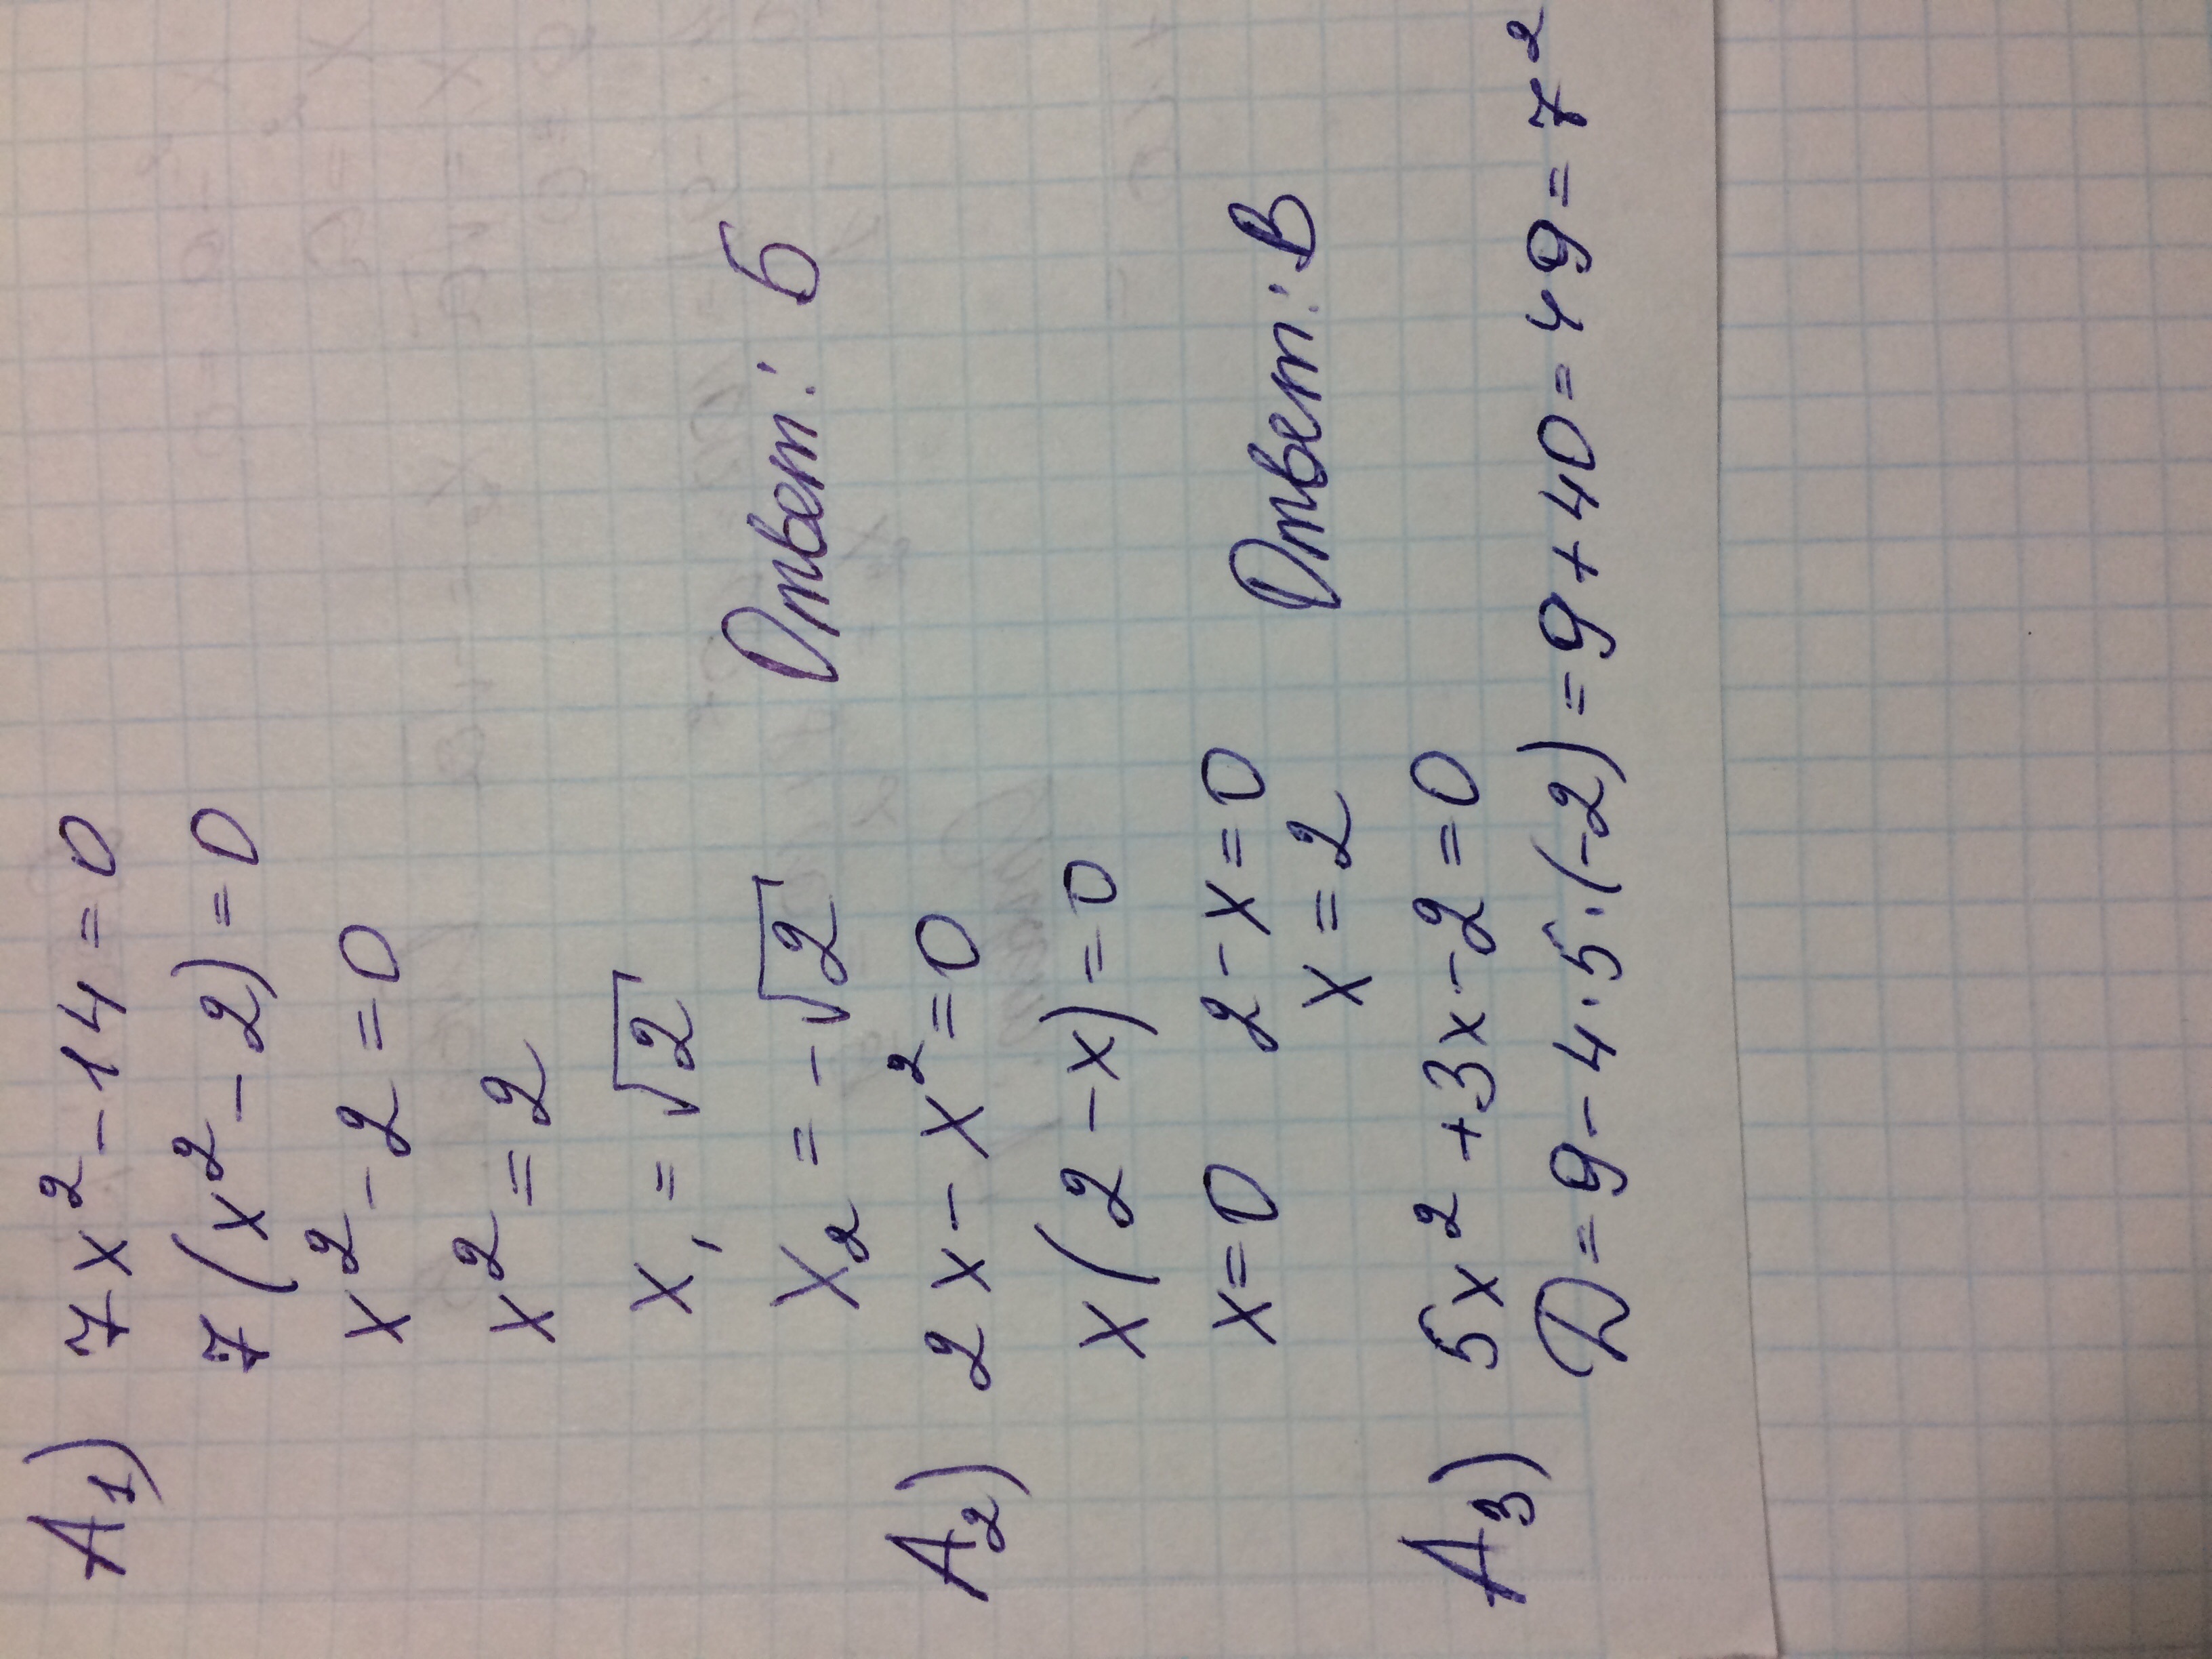 A₁) 7x² - 14 = 0
7(x² - 2) = 0
x² - 2 = 0
x² = 2
x₁ = √2
x₂ = -√2 Ответ: Б
A₂) 2x - x² = 0
x(2 - x) = 0
x = 0 2 - x = 0
x = 2 Ответ: В
A₃) 5x² + 3x - 2 = 0
D = 9 - 4 · 5 · (-2) = 9 + 40 = 49 = 7²